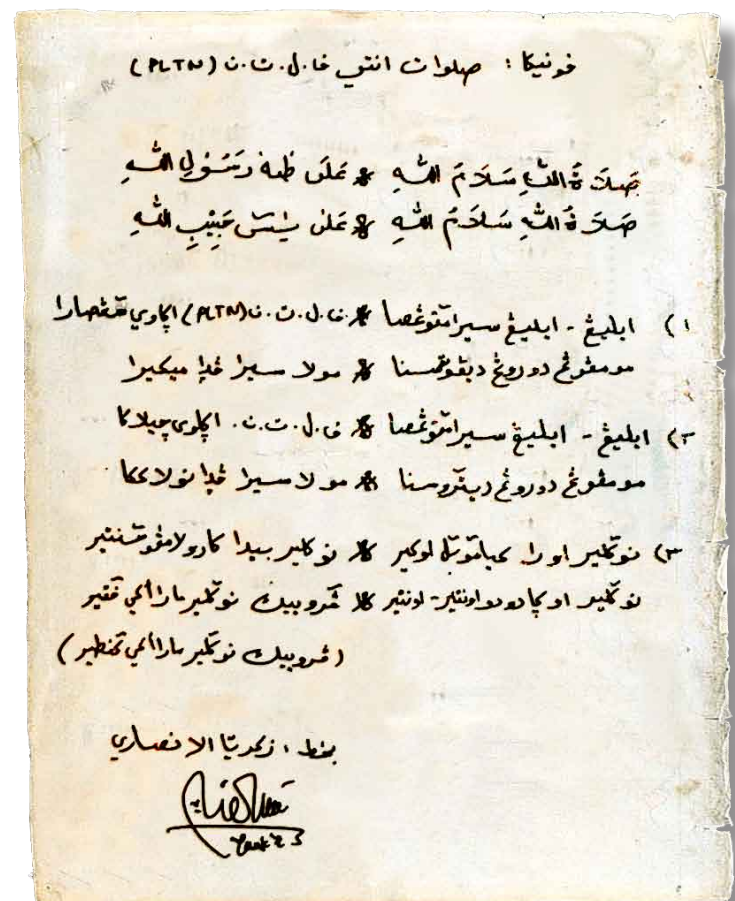 فونيكا : صلوات انتي فا.ل.ت.ن (PLTN)
صَلَاةُ اللهِ سَلَامُ اللهِ * عَلَى طٰهٰ رَسُوْلِ اللهِ
صَلَاةُ اللهِ سَلَامُ اللهِ * عَلَى يٰسٓ حَبِيْبِ اللهِ
١) ايليڠ - ايليڠ سيرا منوڠصا * ف.ل.ت.ن (PLTN) اڮاوي سڠصارا
مومڤوڠ دوروڠ ديبڠونسنا * مولا سيرا ڤدا ميكيرا
٢) ايليڠ - ايليڠ سيرا منوڠصا * ف.ل.ت.ن. اڮاوي چيلاكا
مومڤوڠ دوروڠ ديتروسنا * مولا سيرا ڤدا نولاكا
٣) نوكلير اورا بوكير * نوكلير بيدا كارو لامڤو سنتير
نوكلير اوڮا دودو اونتير - اونتير * ڤروبيك نوكلير مارأاكي فقير
(ڤروبيك نوكلير مارأاكي)
بخط : زكريا الانصاري